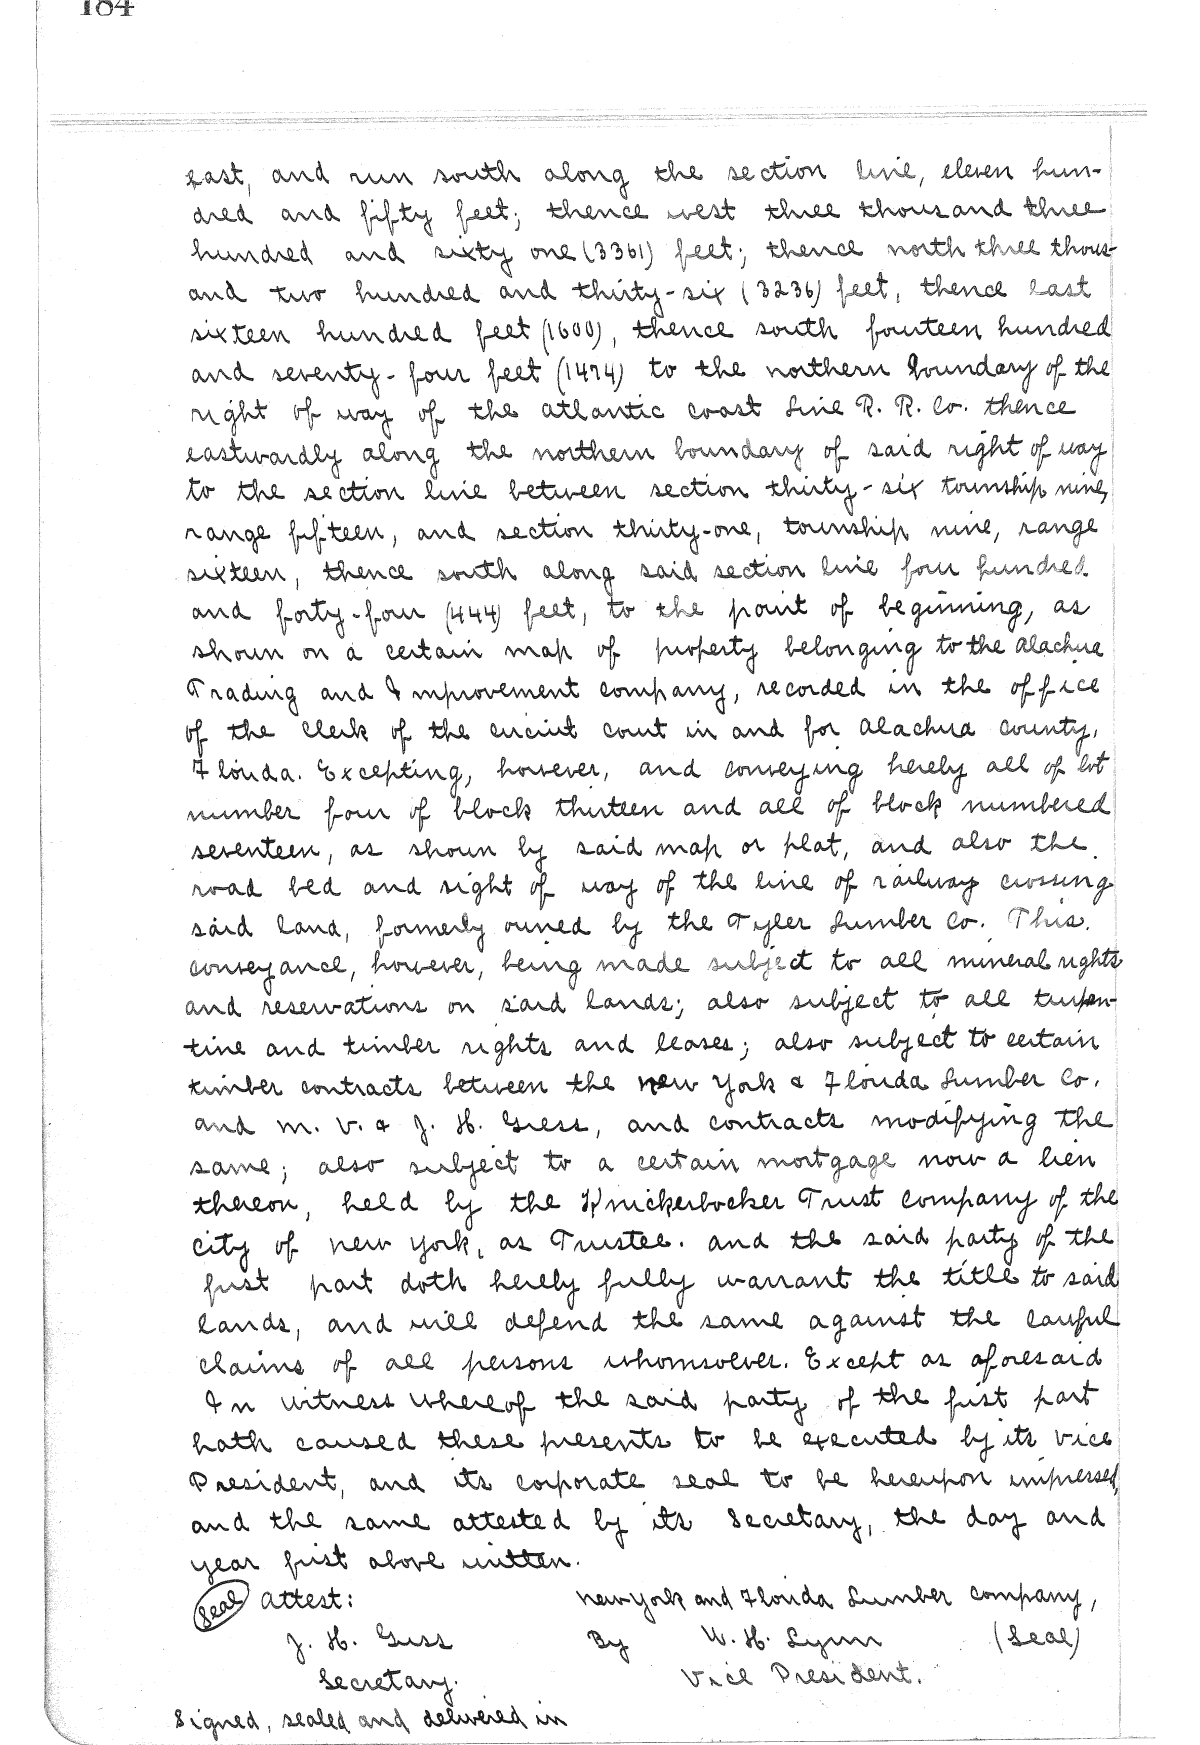 184
east, and run south along the section line, eleven hun-
dred and fifty feet; thence west three thousand three
hundred and sixty one (3361) feet; thence north three thous-
and two hundred and thirty-six (3236) feet, thence east
sixteen hundred feet (1600), thence south fourteen hundred
and seventy-four feet (1474) to the northern boundary of the
right of way of the atlantic coast Line R. R. Co. thence
eastwardly along the northern boundary of said right of way
to the section line between section thirty-six township nine,
range fifteen, and section thirty-one, township nine, range
sixteen, thence south along said section line four hundred
and forty-four (444) feet, to the point of beginning, as
shown on a certain map of property belonging to the Alachua
Trading and Improvement company, recorded in the office
of the Clerk of the circuit court in and for Alachua county,
Florida. Excepting, however, and conveying hereby all of lot
number four of block thirteen and all of block numbered
seventeen, as shown by said map or plat, and also the
road bed and right of way of the line of railway crossing
said land, formerly owned by the Tyler Lumber Co. This
conveyance, however, being made subject to all mineral rights
and reservations on said lands; also subject to all turpen-
tine and timber rights and leases; also subject to certain
timber contracts between the New York & Florida Lumber Co.
and M. V. & J. H. Gress, and contracts modifying the
same; also subject to a certain mortgage now a lien
thereon, held by the Knickerbocker Trust Company of the
city of New York, as Trustee. and the said party of the
first part doth hereby fully warrant the title to said
lands, and will defend the same against the lawful
claims of all persons whomsoever. Except as aforesaid
In witness whereof the said party of the first part
hath caused these presents to be executed by its Vice
President, and its corporate seal to be hereupon impressed,
and the same attested by its Secretary, the day and
year first above written.
Seal Attest: New York and Florida Lumber Company,
J. H. Guss By W. H. Lynn (Seal)
Secretary. Vice President.
Signed, sealed and delivered in